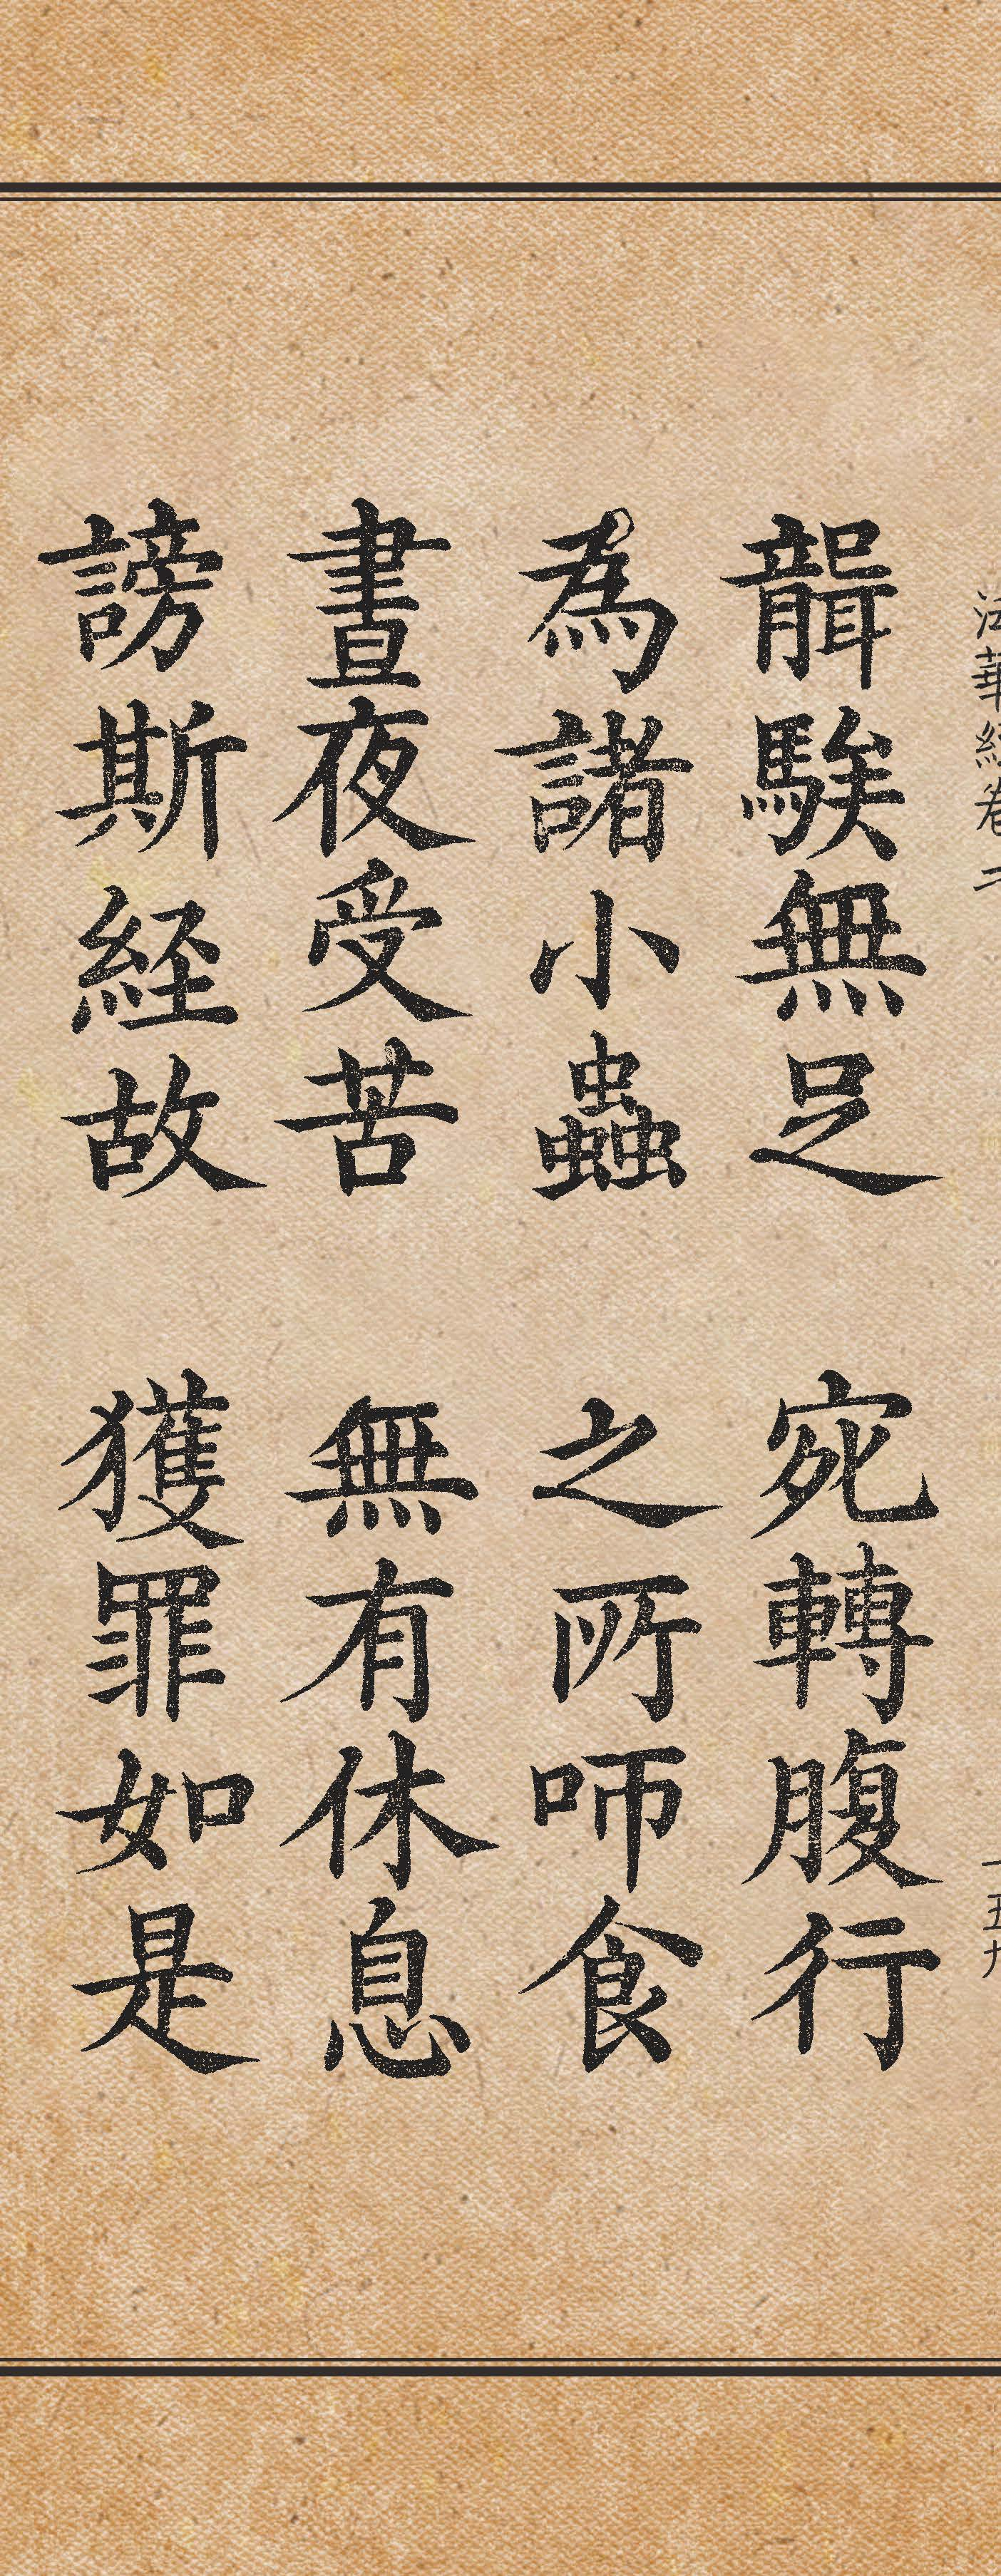 法華経卷二
一五九
聾騃無足　宛轉腹行
為諸小蟲　之所𠯗食
晝夜受苦　無有休息
謗斯経故　獲罪如是